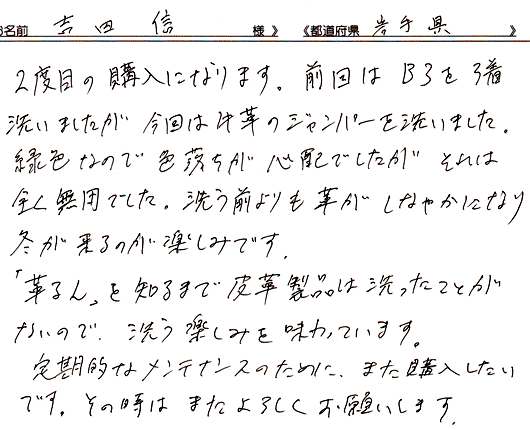 お名前 吉田 信 様》 《都道府県 岩手県 》
2度目の購入になります。前回はB3を3着
洗いましたが今回は牛革のジャンパーを洗いました。
緑色なので色落ちが心配でしたがそれは
全く無用でした。洗う前よりも革がしなやかになり
冬が来るのが楽しみです。
「革るん」を知るまで皮革製品は洗ったことが
ないので、洗う楽しみを味わっています。
定期的なメンテナンスのために、また購入したい
です。その時はまたよろしくお願いします。